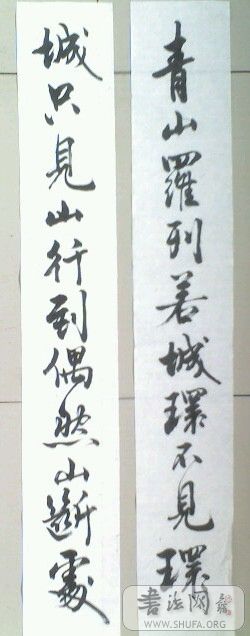 青山羅列若城環不見環
城只見山行到偶然山斷處
書法網
WWW.SHUFA.ORG